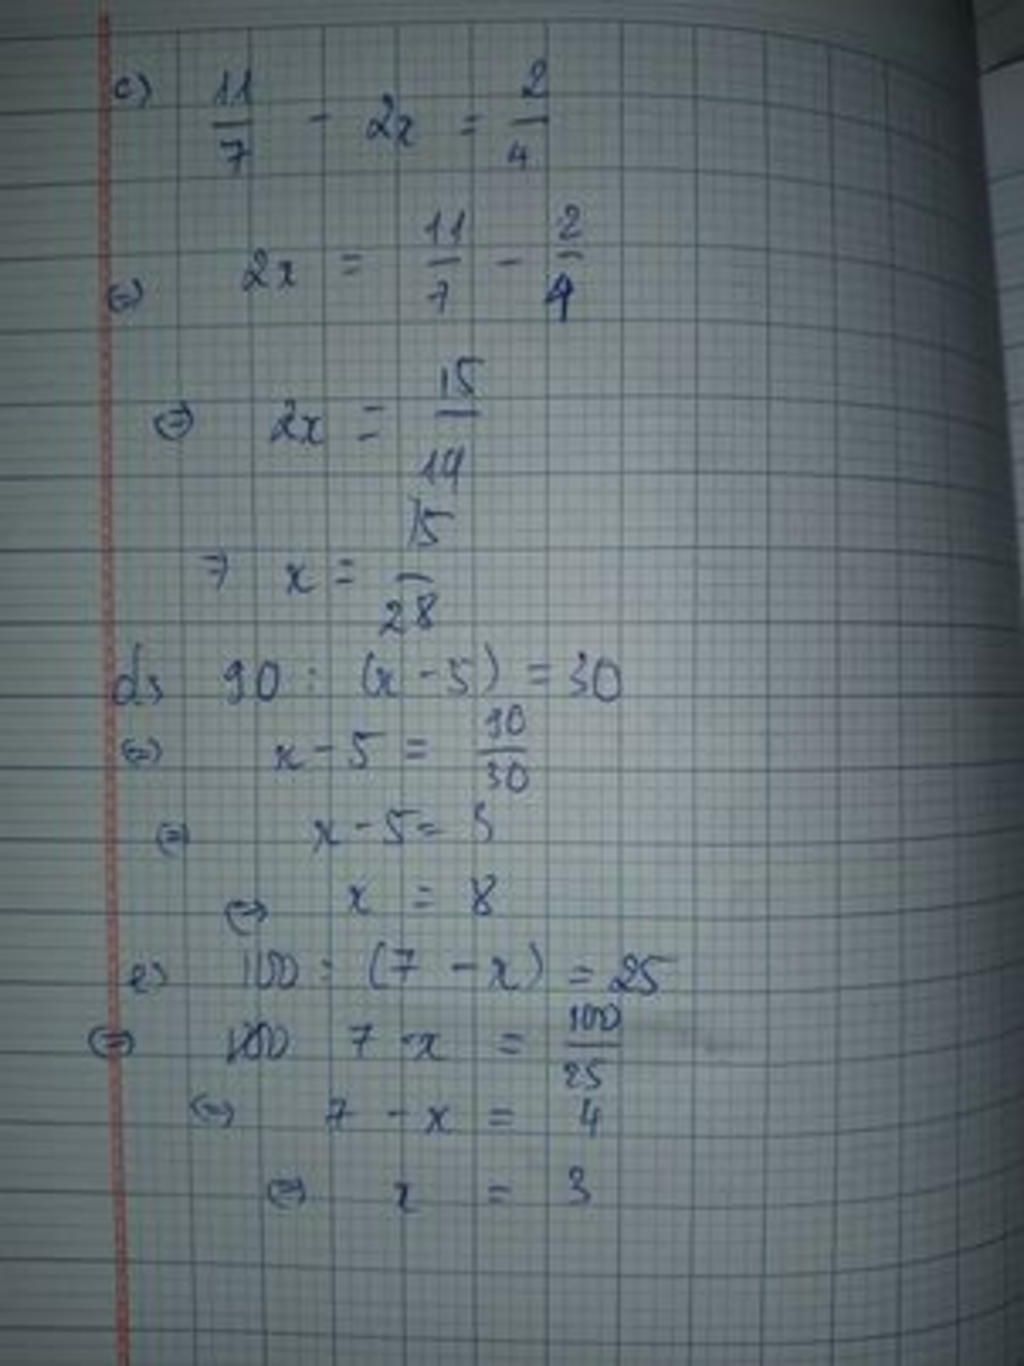 c) 11/7 - 2x = 2/4
⇔ 2x = 11/7 - 2/4
⇔ 2x = 15/14
⇒ x = 15/28
d) 90 : (x - 5) = 30
⇔ x - 5 = 90/30
⇔ x - 5 = 3
⇔ x = 8
e) 100 : (7 - x) = 25
⇔ 7 - x = 100/25
⇔ 7 - x = 4
⇔ x = 3